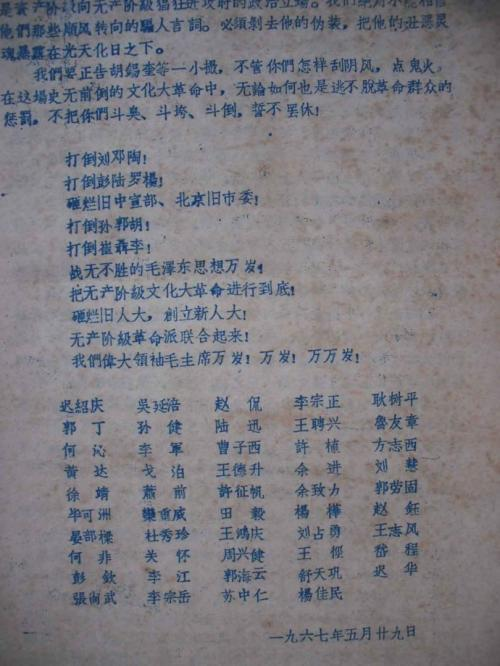 是资产阶级向无产阶级猖狂进攻时的政治立场。我们绝对不能相信
他們那些順风转向的騙人言詞。必須剝去他的伪装，把他的丑恶灵
魂暴露在光天化日之下。
我們要正告胡錫奎等一小撮，不管你們怎样刮阴风，点鬼火，
在这場史无前例的文化大革命中，无論如何也是逃不脫革命群众的
惩罰。不把你們斗臭、斗垮、斗倒，誓不罢休！
打倒刘邓陶！
打倒彭陆罗楊！
砸烂旧中宣部、北京旧市委！
打倒孙郭胡！
打倒崔聶李！
战无不胜的毛澤东思想万岁！
把无产阶級文化大革命进行到底！
砸烂旧人大，創立新人大！
无产阶級革命派联合起来！
我們偉大領袖毛主席万岁！万岁！万万岁！
迟紹庆 吳延涪 赵侃 李宗正 耿树平
郭丁 孙健 陆迅 王聘兴 魯友章
何沁 李軍 曹子西 許植 方志西
黄达 戈泊 王德升 余进 刘慧
徐靖 蕭前 許征帆 余致力 郭劳固
毕可洲 欒重威 田毅 楊樺 赵鈺
晏部樑 杜秀珍 王鴻庆 刘占勇 王志风
何非 关怀 周兴健 王徑 嵇程
彭欽 李江 郭海云 舒天巩 迟华
張尙武 李宗岳 苏中仁 楊佳民
一九六七年五月廿九日